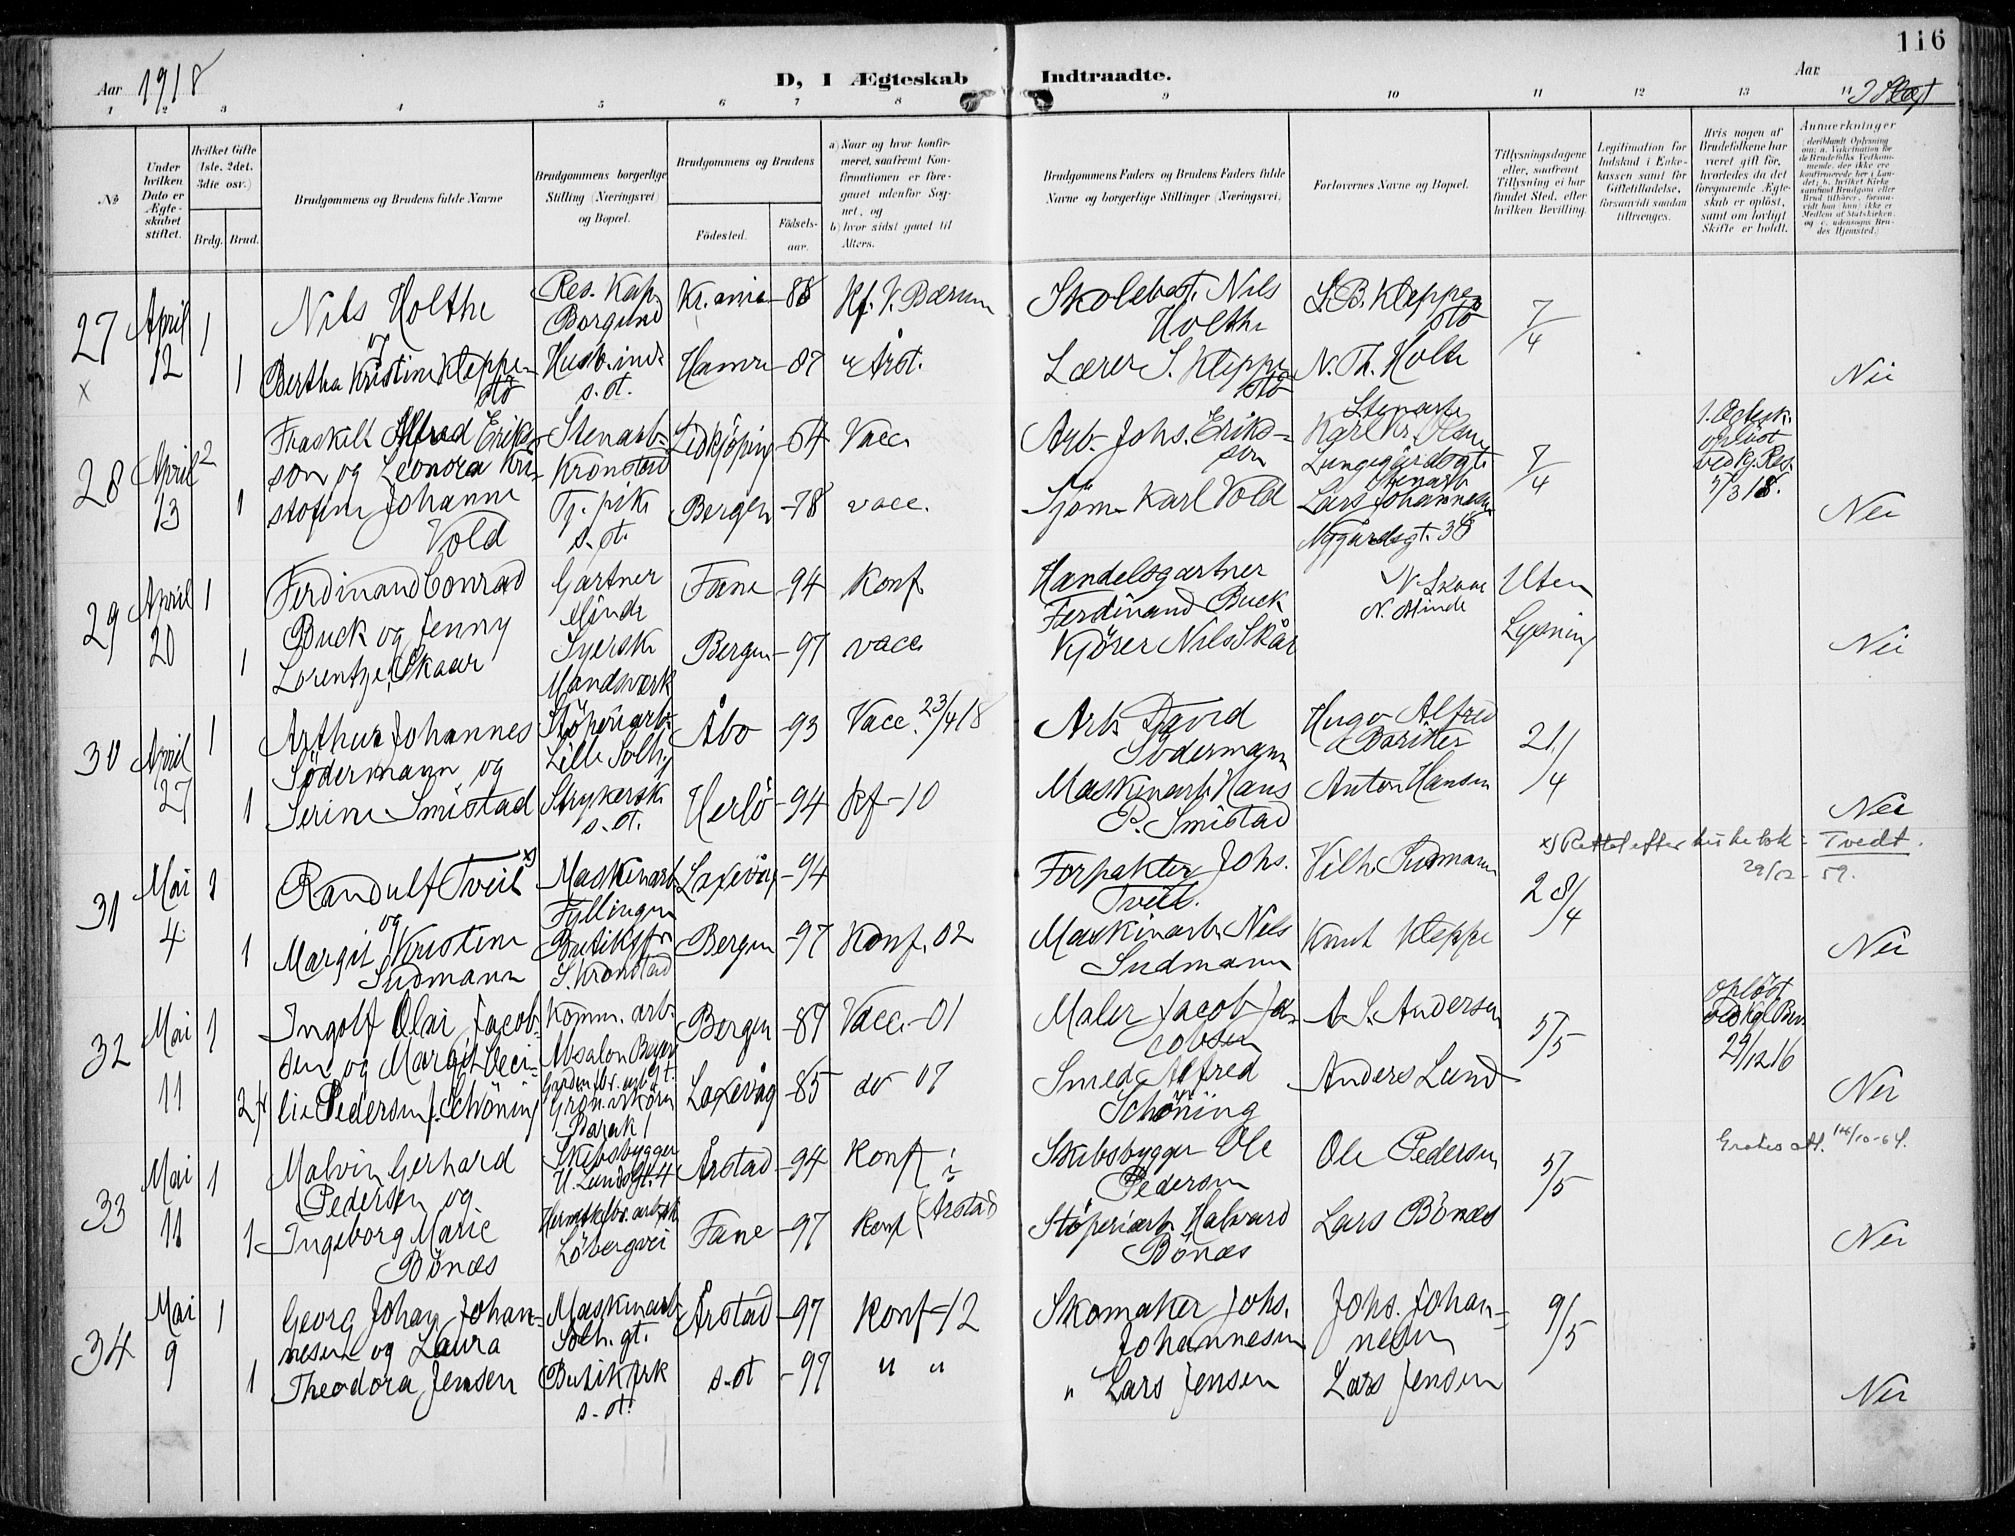 116
Aar 1918
D, I Ægteskab Indtraadte.
Aar
1 2 3 4 5 6 7 8 9 10 11 12 13 14
I Slægt
No
Under hvilken Dato er Ægteskabet stiftet.
Hvilket Gifte (1ste, 2det, 3die osv.)
Brdg. Brud.
Brudgommens og Brudens fulde Navne
Brudgommens borgerlige Stilling (Næringsvei) og Bopæl.
Brudgommens og Brudens
Födested.
Födselsaar.
a) Naar og hvor konfirmeret, saafremt Konfirmationen er foregaaet udenfor Sognet, og
b) hvor sidst gaaet til Alters.
Brudgommens Faders og Brudens Faders fulde Navne og borgerlige Stillinger (Næringsvei)
Forlovernes Navne og Bopæl.
Tillysningsdagene eller, saafremt Tillysning ei har fundet Sted, efter hvilken Bevilling.
Legitimation for Indskud i Enkekassen samt for Giftetilladelse, forsaavidt saadan tiltrænges.
Hvis nogen af Brudefolkene har været gift för, hvorledes da det foregaaende Ægteskab er oplöst, samt om lovligt Skifte er holdt.
Anmærkninger
(deriblandt Oplysning om: a. Vakcination for de Brudefolks Vedkommende, der ikke ere konfirmerede her i Landet; b. hvilket Kirkesamfund Brudgom eller Brud tilhörer, forsaavidt han (hun) ikke er Medlem af Statskirken, og c. udensogns Brudes Hjemsted.)
27 April 12 1 Nils Holthe Res. Kap. Borgund Kr.ania -88 Kf. V. Bærum Skolebest. Nils Holthe S. B. Kleppestö 7/4
x og
1 Bertha Kristine Kleppestö Husb.ind. s. st. Hamre -87 " Årst. Lærer S. Kleppestö N. Th. Holthe Nei
28 April 13 2 Fraskilt Alfred Erikson og Leonora Kristofine Johanne Vold Stenarb. Kronstad Lidkjöping -64 Vacc. Arb. Johs. Erikson Stenarb. Karl Kr. Olsen Lungegårdsgt. 7/4 1. Ægtesk. oplöst ved kg. Res. 5/3 18.
1 Tj. pike s. st. Bergen -78 vacc. Sjöm. Karl Vold Stenarb. Lars Johannesen Nygårdsgt. 38 Nei
29 April 20 1 Ferdinand Conrad Buck og Jenny Lorentze Skaar Gartner Minde Fane -94 Konf. Handelsgartner Ferdinand Buck N. Skaar N. Minde Uten Lysning
1 Syerske Mandsværk Bergen -97 vacc. Kjörer Nils Skår Nei
30 April 27 1 Arthur Johannes Södermann og Stöperiarb. Lille Solh. Åbo -93 Vacc. 23/4 18 Arb. David Södermann Hugo Alfred 21/4
1 Serine Smistad Strykersk. s. st. Herlö -94 Kf -10 Maskinarb. Hans P. Smistad Anton Hansen Nei
31 Mai 4 1 Randulf Tveit x) Maskinarb. Fyllingen Laxevåg -94 Forpakter Johs. Tveit. Vilh. Sudmann 28/4 x) Rettet efter kirkebok: Tvedt. 29/12-59.
og
1 Margit Kristine Sudmann Butiksfr. S. Kronstad Bergen -97 Konf. 02 Maskinarb. Nils Sudmann Knut Kleppe Nei
32 Mai 11 1 Ingolf Olai Jacobsen og Margit Cecilie Pedersen f. Schöning Komm. arb. Absalon Beyersgt. Bergen -87 Vacc. -01 Maler Jacob Jacobsen A. S. Andersen 5/5 oplöst ved kgl. Bev. 29/12 16
2 Barak 1 Laxevåg -85 do 07 Smed Alfred Schöning Anders Lund Nei
33 Mai 11 1 Malvin Gerhard Pedersen og Skibsbygger U. Lundsgt. 4 Årstad -94 Konf. i Skibsbygger Ole Pedersen Ole Pedersen 5/5 Gratis att. 14/10-64.
1 Ingeborg Marie Bönæs Hermetikbr. arbsk. Löbergsvei Fane -97 Konf (Årstad Stöperiarb. Halvard Bönæs Lars Bönæs Nei
34 Mai 9 1 Georg Johan Johannesen og Laura Theodora Jensen Maskinarb. Solh. gt. Årstad -97 Konf -12 Skomaker Johs. Johannesen Johs. Johannesen 9/5
1 Butikfrk s. st. s. st -99 " " " Lars Jensen Lars Jensen Nei